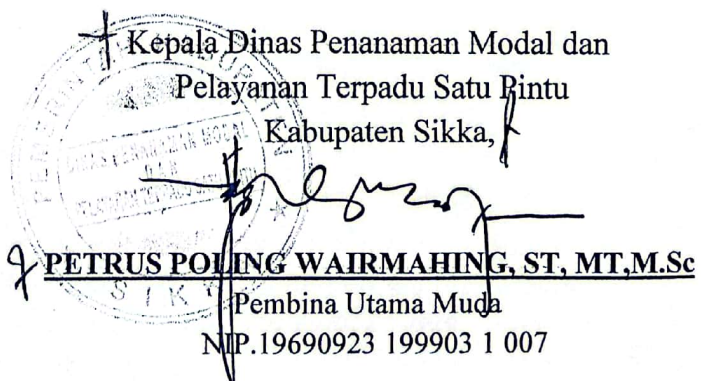 Kepala Dinas Penanaman Modal dan
Pelayanan Terpadu Satu Pintu
Kabupaten Sikka,
PETRUS POLING WAIRMAHING, ST, MT,M.Sc
SIKKA
Pembina Utama Muda
NIP.19690923 199903 1 007